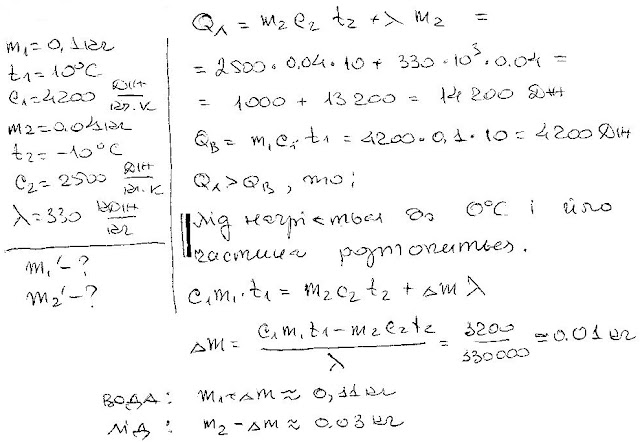 m₁ = 0,1 кг
t₁ = 10°C
c₁ = 4200 Дж/кг·К
m₂ = 0.04 кг
t₂ = -10°C
c₂ = 2500 Дж/кг·К
λ = 330 кДж/кг
m₁' - ?
m₂' - ?
Qл = m₂ c₂ t₂ + λ m₂ =
= 2500 · 0,04 · 10 + 330 · 10³ · 0.04 =
= 1000 + 13200 = 14200 Дж
Qв = m₁ c₁ t₁ = 4200 · 0,1 · 10 = 4200 Дж
Qл > Qв, то:
лід нагріється до 0°C і його
частина розтопиться.
c₁ m₁ · t₁ = m₂ c₂ t₂ + Δm λ
Δm = (c₁ m₁ t₁ - m₂ c₂ t₂)/λ = 3200/330000 ≈ 0.01 кг
ВОДА: m₁ + Δm ≈ 0,11 кг
ЛІД: m₂ - Δm ≈ 0.03 кг